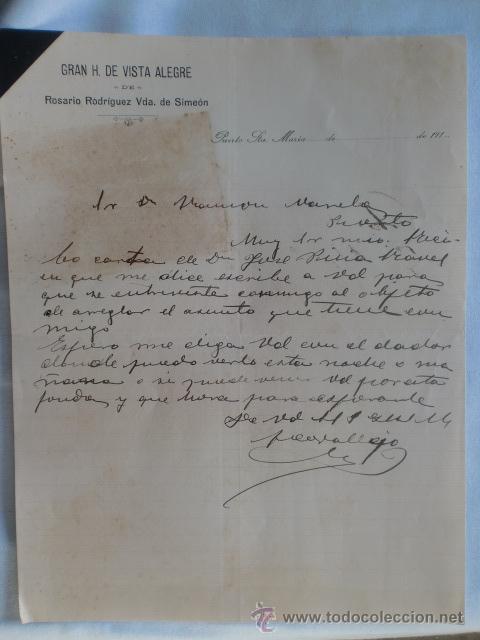 GRAN H. DE VISTA ALEGRE
DE
Rosario Rodríguez Vda. de Simeón
Puerto Sta. María de de 191
Sr Dn Ramon Varela
Muy Sr mio: Reci-
bo carta de Dn José
en que me dice escribe a Vd para
que se entreviste conmigo al objeto
de arreglar el asunto que tiene con
migo
Espero me diga Vd con el dador
donde puedo verlo esta noche o ma
ñana o si puede venir Vd por esta
fonda y que hora para esperarle
De Vd
todocoleccion
www.todocoleccion.net